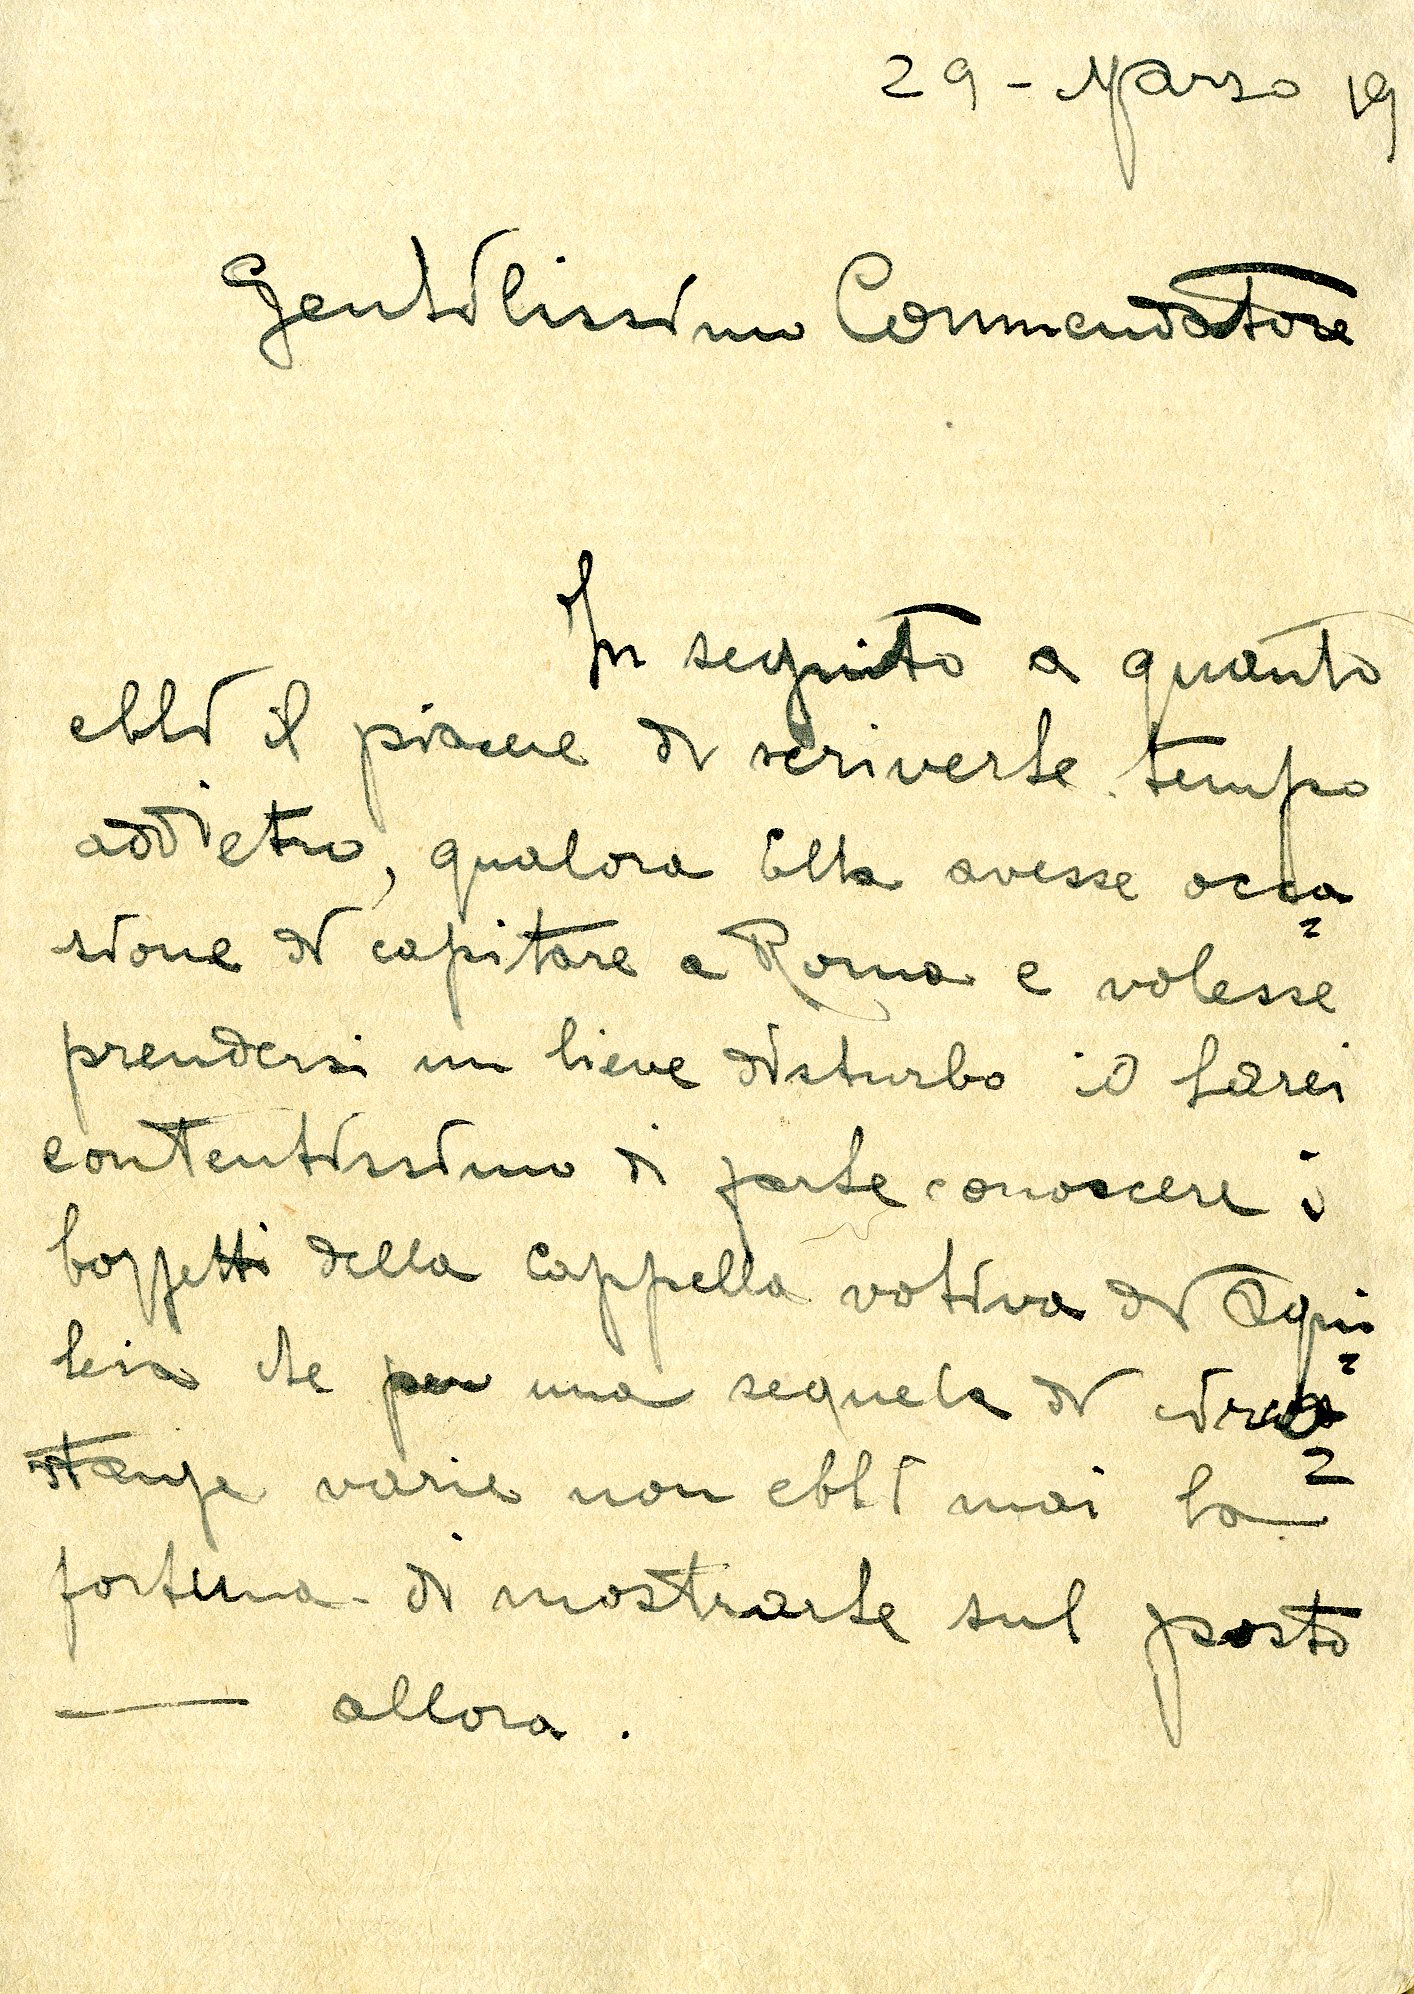 29 - Marzo 19
Gentilissimo Commendatore
In seguito a quanto
ebbi il piacere di scriverle tempo
addietro, qualora Ella avesse occa=
sione di capitare a Roma e volesse
prendersi un lieve disturbo io sarei
contentissimo di farle conoscere i
bozzetti della Cappella votiva di Aqui=
leia che per una sequela di circo=
stanze varie non ebbi mai la
fortuna di mostrarle sul posto
— allora.